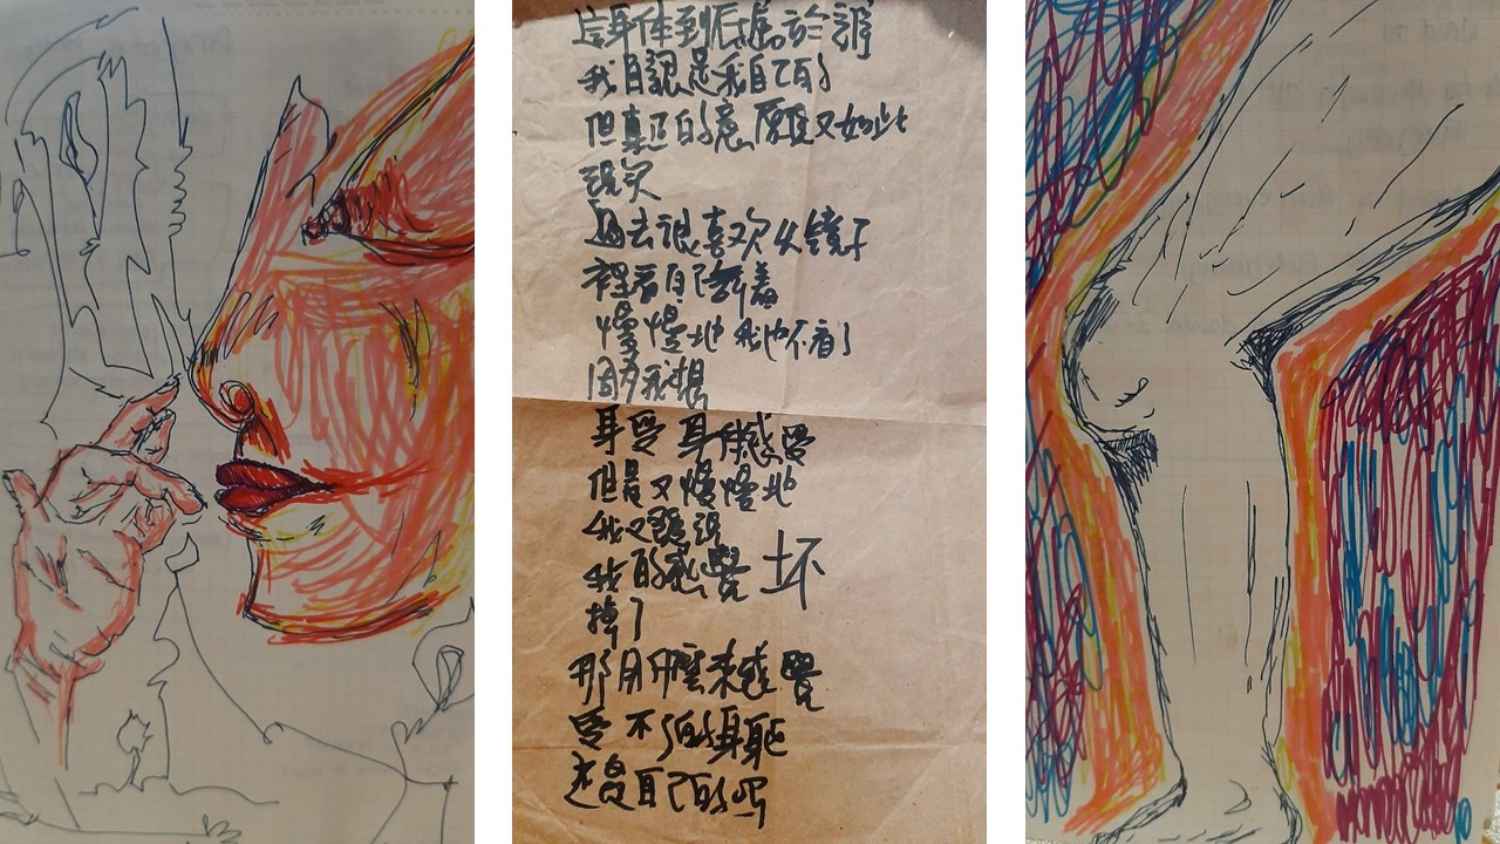 這身体到底属於誰
我自認是我自己的
但真正的意願又如此
現实
過去很喜欢从鏡子
裡看自己舞着
慢慢地 我也不看了
因为我想
享受 身体感覺
但是又慢慢地
我又聽説
我的感覺 坏
掉了
那用什麼来感覺
受不了的身軀
还是自己的嗎